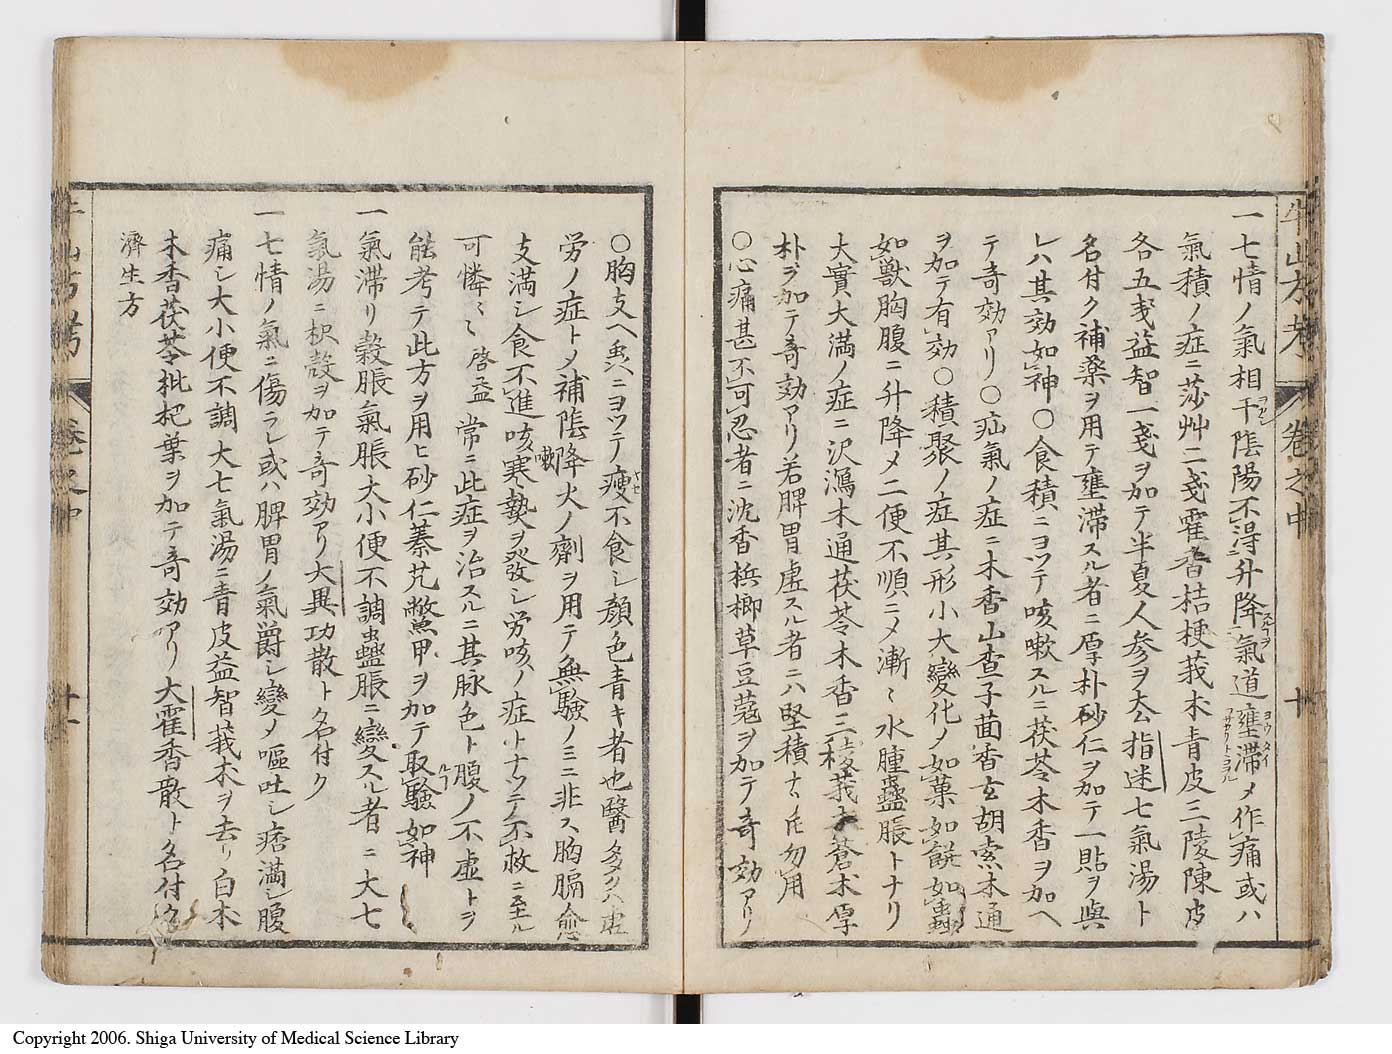 牛山方考 卷之中 十
一七情ノ氣相干陰陽不得升降氣道壅滞メ作痛或ハ
氣積ノ症ニ莎艸二戔霍香桔梗莪朮青皮三陵陳皮
各五戔益智一戔ヲ加テ半夏人参ヲ去公指迷七氣湯ト
名付ク補藥ヲ用テ壅滞スル者ニ厚朴砂仁ヲ加テ一貼ヲ與
レハ其効如神〇食積ニヨツテ咳嗽スルニ茯苓木香ヲ加ヘ
テ奇効アリ〇疝氣ノ症ニ木香山查子茴香玄胡索木通
ヲ加テ有効〇積聚ノ症其形小大變化ノ如菓如餅如蟲
如獸胸腹ニ升降メ二便不順ニメ漸〻水腫蠱脹トナリ
大實大満ノ症ニ沢瀉木通茯苓木香三稜莪朮蒼朮厚
朴ヲ加テ奇効アリ若脾胃虚スル者ニハ堅積ナレ𪜈勿用
〇心痛甚不可忍者ニ沈香梹榔草豆蔻ヲ加テ奇効アリ
〇胸支ヘ炁ニヨツテ瘦不食シ顔色青キ者也醫多クハ虚
労ノ症トメ補陰降火ノ劑ヲ用テ無驗ノミニ非ス胸膈愈
支満シ食不進咳嗽寒熱ヲ發シ労咳ノ症トナツテ不救ニ至ル
可憐〻啓益常ニ此症ヲ治スルニ其脉色ト腹ノ不虚トヲ
能考テ此方ヲ用ヒ砂仁蓁艽鱉甲ヲ加テ取驗如神
一氣滞リ穀脹氣脹大小便不調蠱脹ニ變スル者ニ大七
氣湯ニ枳殻ヲ加テ奇効アリ大異功散ト名付ク
一七情ノ氣ニ傷ラレ或ハ脾胃ノ氣欝シ變メ嘔吐シ痞満シ腹
痛シ大小便不調大七氣湯ニ青皮益智莪朮ヲ去リ白朮
木香茯苓枇杷葉ヲ加テ奇効アリ大霍香散ト名付ク
濟生方
牛山方考 卷之中 十一
Copyright 2006. Shiga University of Medical Science Library